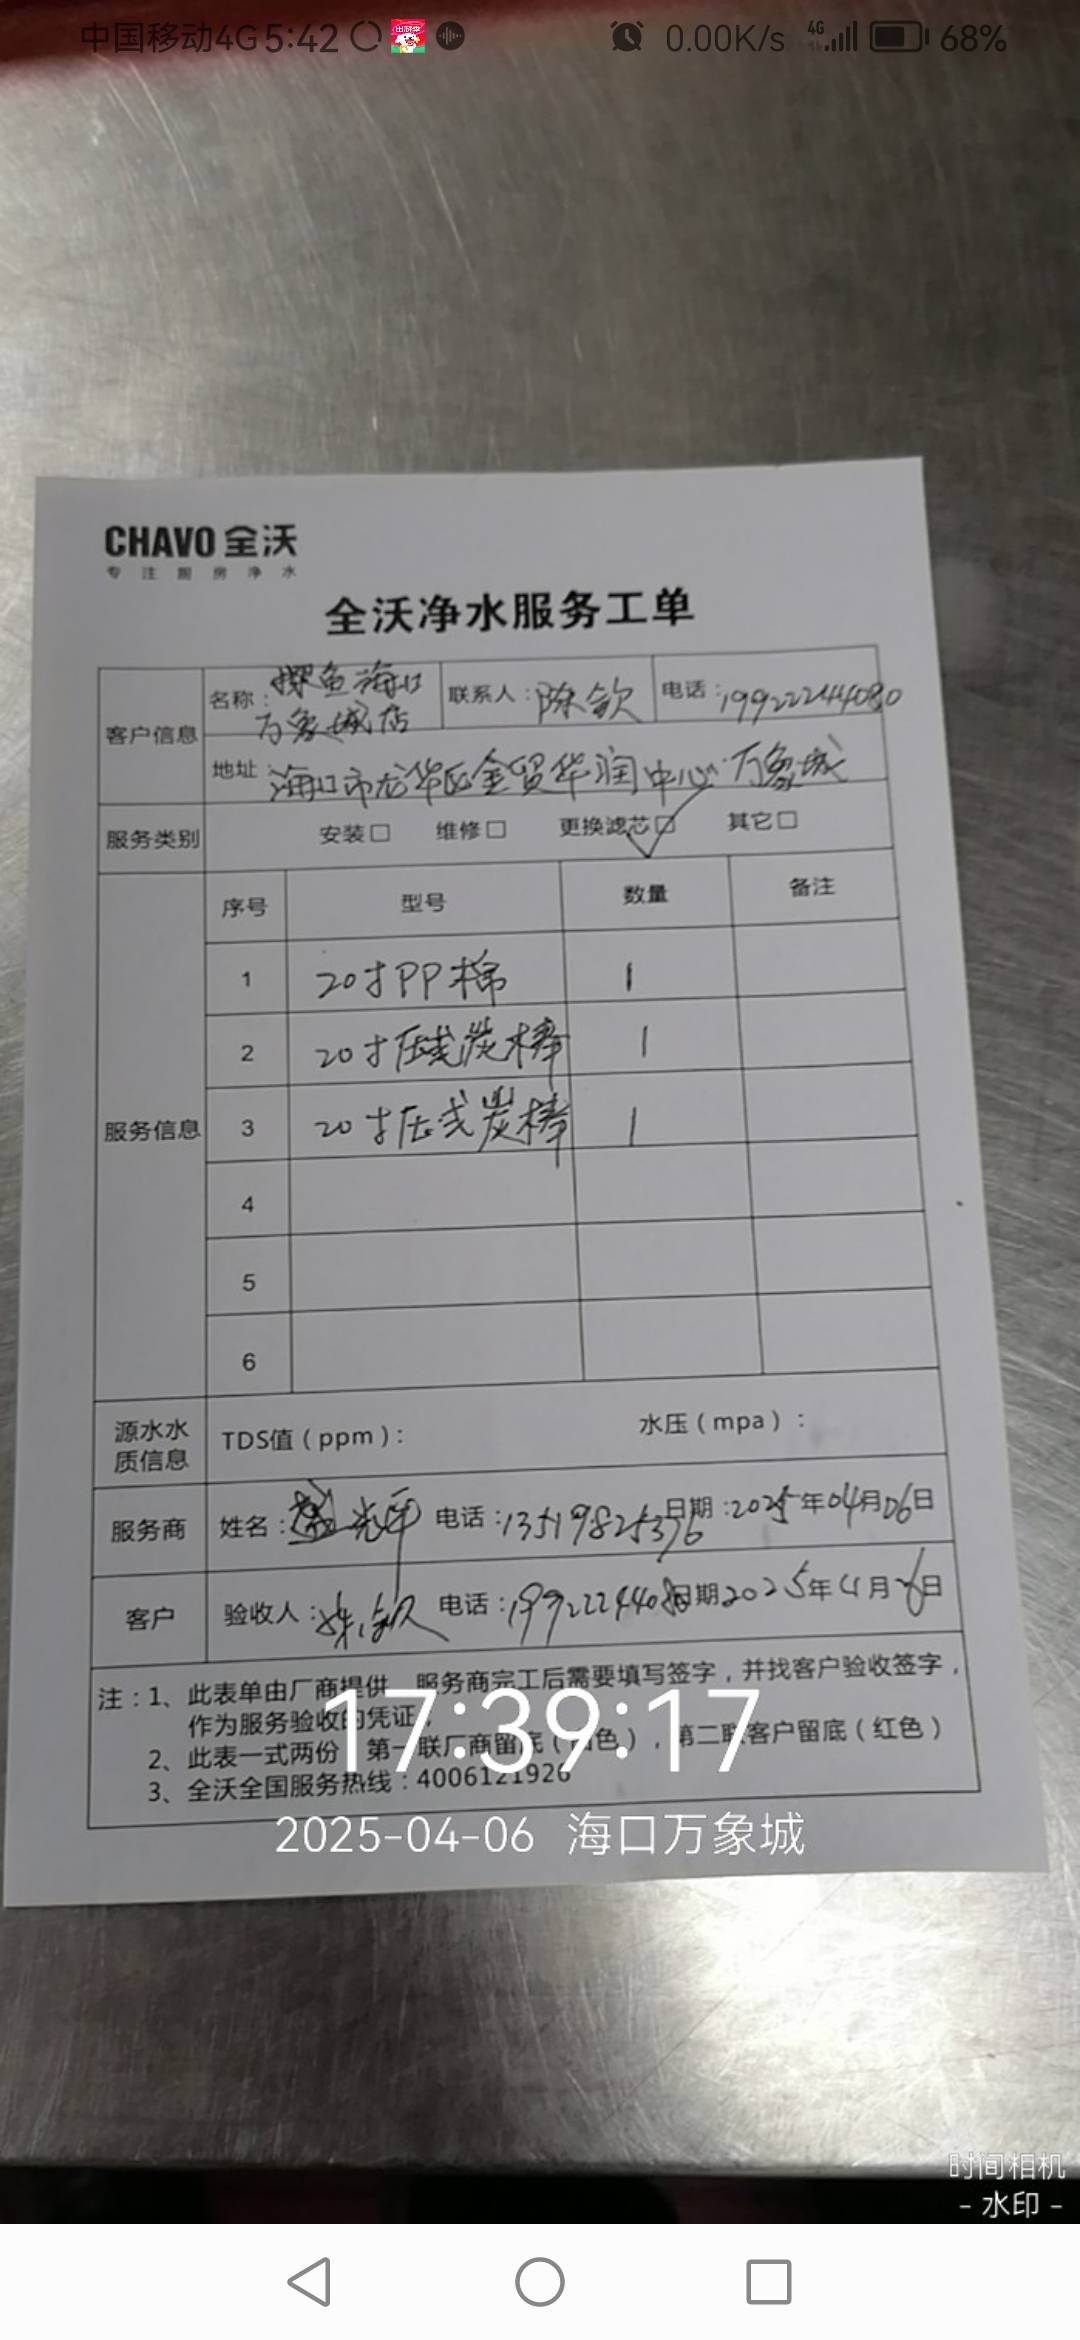 中国移动4G 5:42 0.00K/s 4G 68%
CHAVO 全沃
专注厨房净水
全沃净水服务工单
客户信息 名称：探鱼海口万象城店 联系人：陈钦 电话：19922244080
地址：海口市龙华区金贸华润中心万象城
服务类别 安装□ 维修□ 更换滤芯□ 其它□
服务信息 序号 型号 数量 备注
1 20寸PP棉 1
2 20寸压缩炭棒 1
3 20寸压缩炭棒 1
4
5
6
源水水质信息 TDS值（ppm）： 水压（mpa）：
服务商 姓名： 电话：13519825376 日期：2025年04月06日
客户 验收人： 电话：19922244080 日期2025年4月6日
注：1、此表单由厂商提供，服务商完工后需要填写签字，并找客户验收签字，
作为服务验收的凭证，
2、此表一式两份，第一联厂商留底（白色），第二联客户留底（红色）
3、全沃全国服务热线：4006121926
17:39:17
2025-04-06 海口万象城
时间相机
- 水印 -